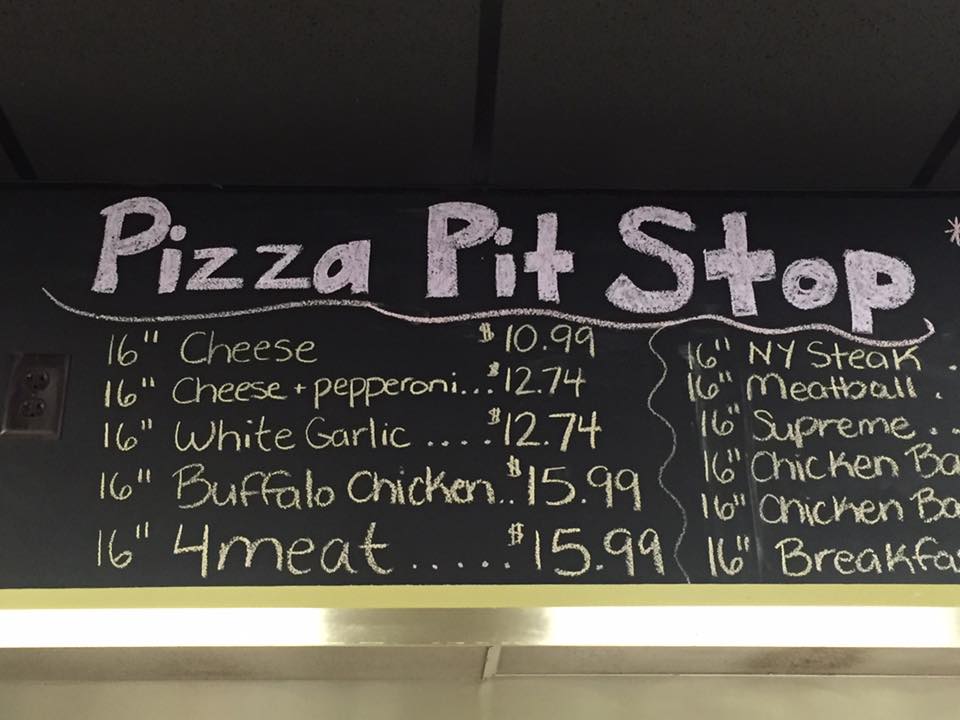 Pizza Pit Stop
16" Cheese $10.99
16" Cheese + pepperoni... $12.74
16" White Garlic .... $12.74
16" Buffalo Chicken.. $15.99
16" 4meat ...... $15.99
16" NY Steak .
16" Meatball .
16" Supreme . .
16" Chicken
16" Chicken
16"